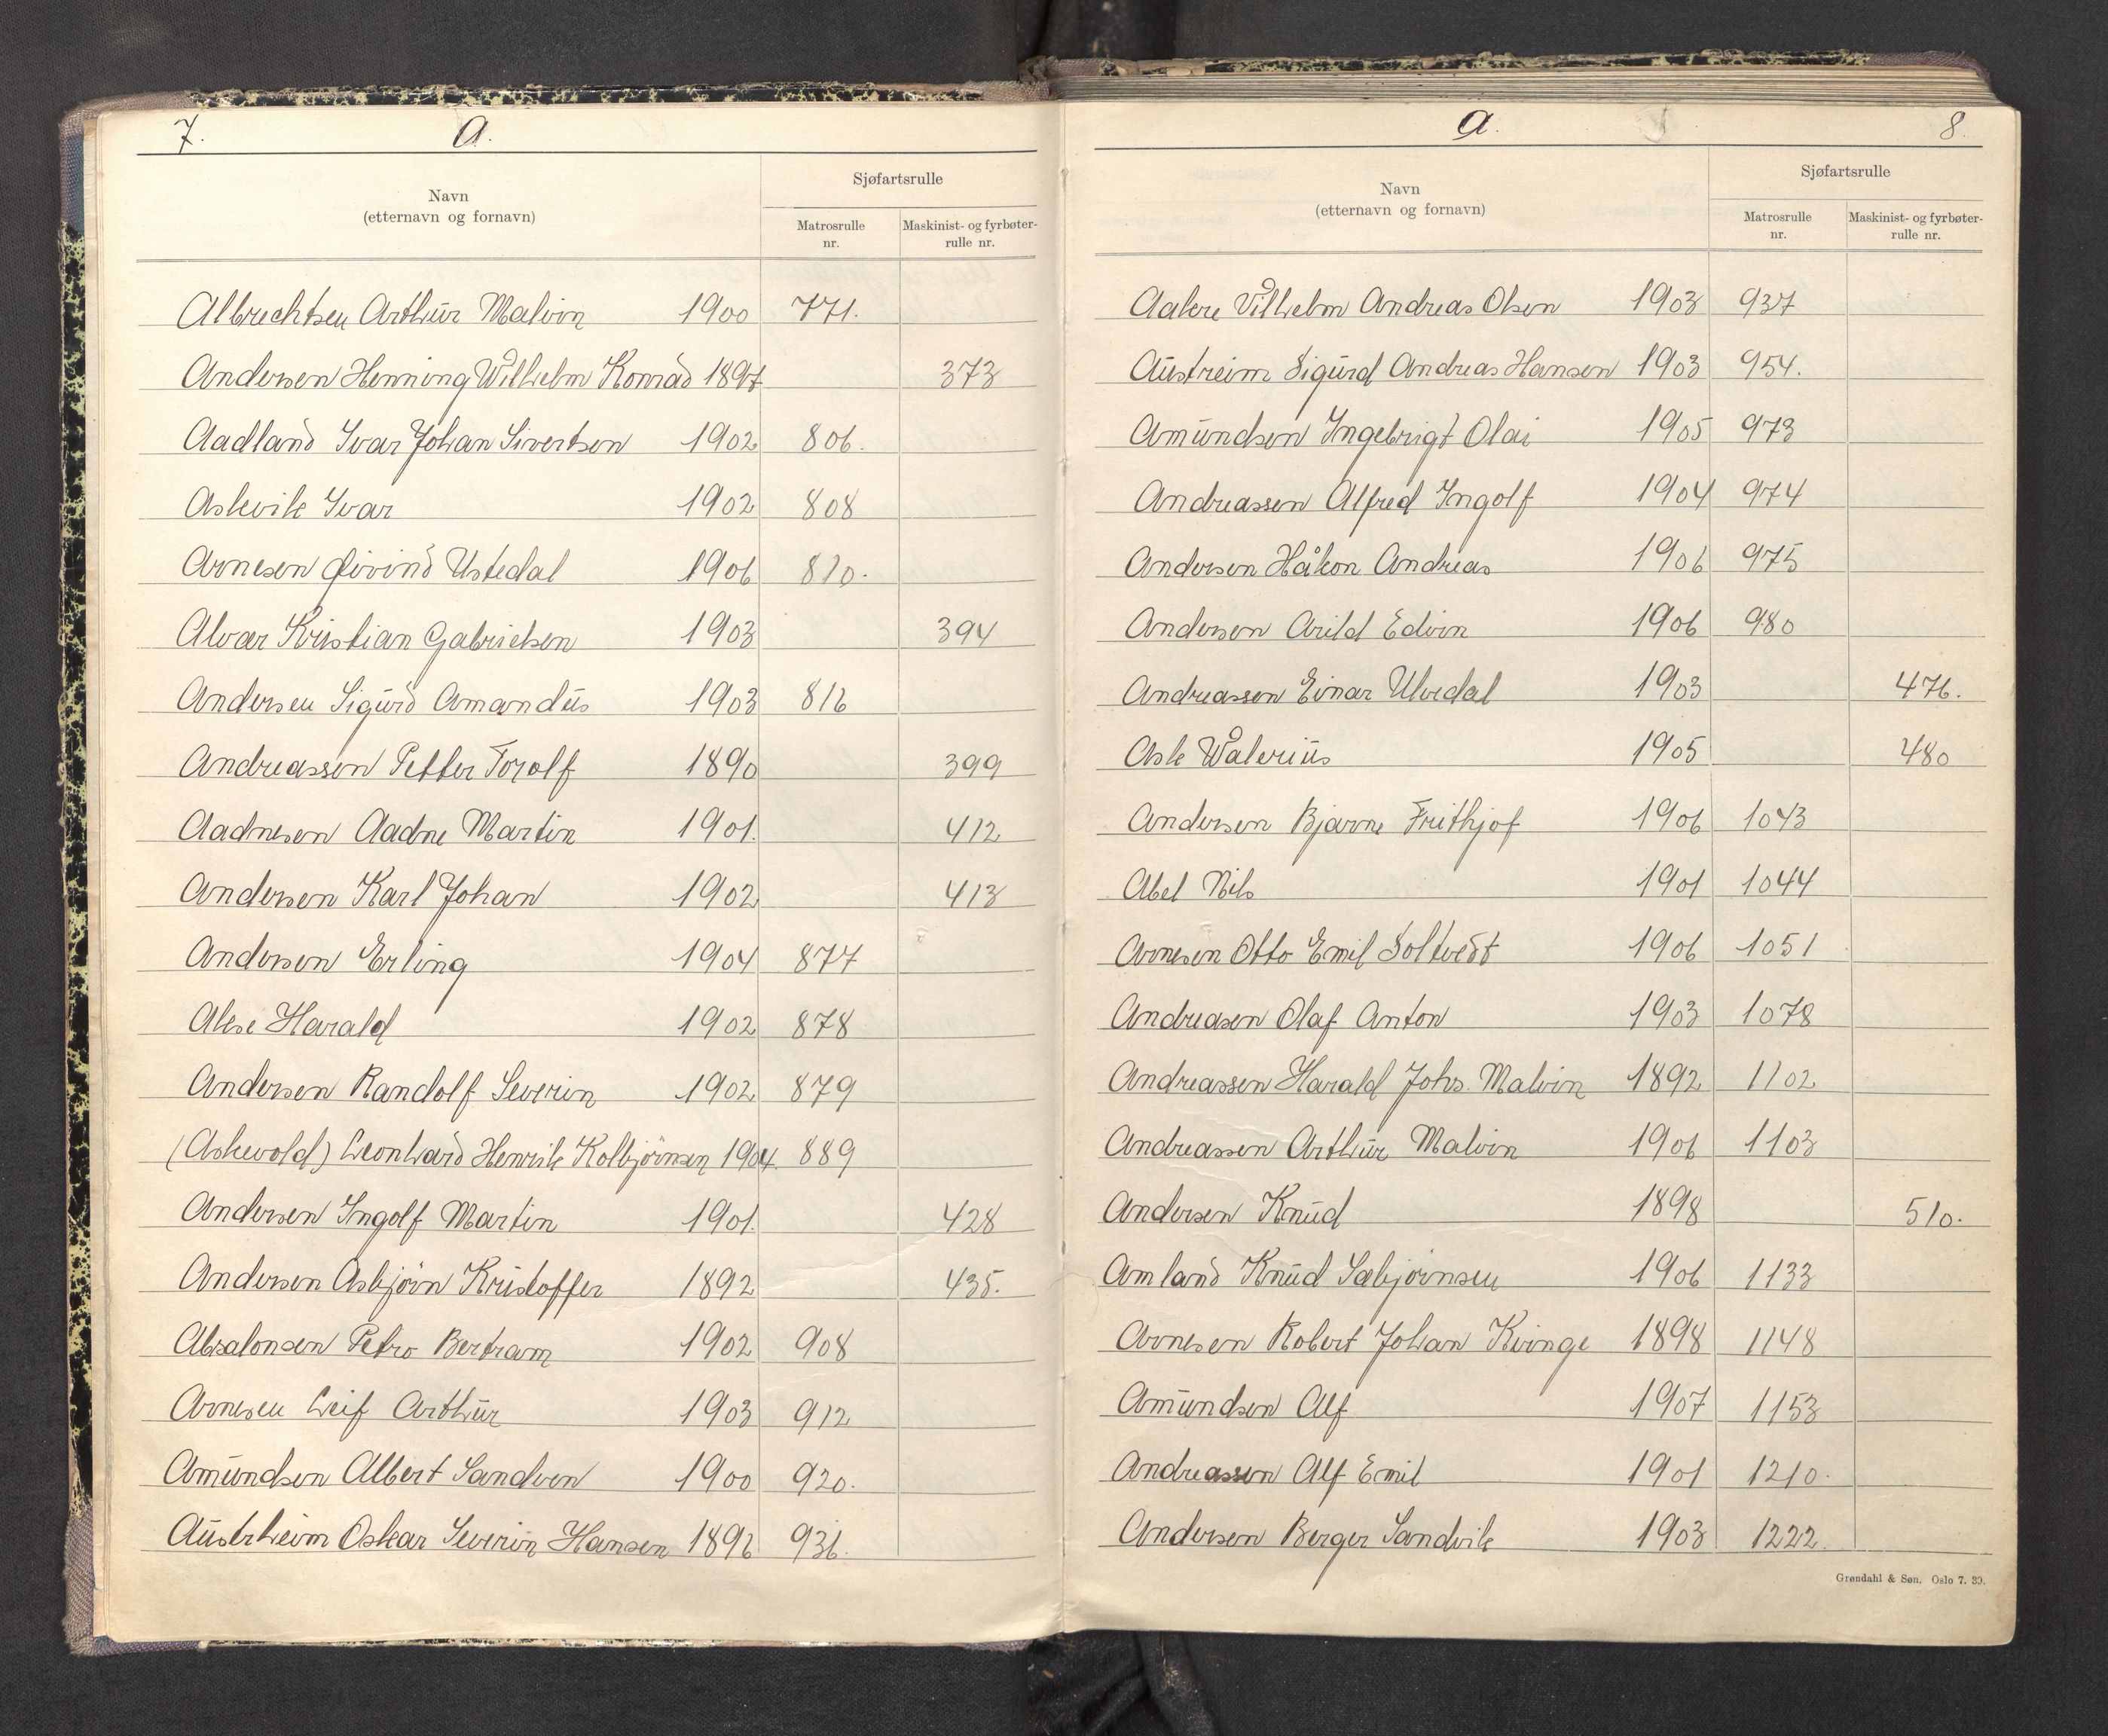 7. A.
Navn
(etternavn og fornavn)
Sjøfartsrulle
Matrosrulle
nr.
Maskinist- og fyrbøter-
rulle nr.
Albrechtsen Arthur Malvin 1900 771.
Andersen Henning Wilhelm Konrad 1897 373
Aadland Ivar Johan Sivertsen 1902 806.
Askvik Ivar 1902 808
Arnesen Øivind Ustedal 1906 810.
Alvar Kristian Gabrielsen 1903 394
Andersen Sigurd Amandus 1903 816
Andreassen Petter Torolf 1890 399
Aadnesen Aadne Martin 1901. 412
Andersen Karl Johan 1902 413
Andersen Erling 1904 877
Harald 1902 878
Andersen Randolf Severin 1902 879
(Askevold) Leonhard Henrik Kolbjörnsen 1904. 889
Andersen Ingolf Martin 1901. 428
Andersen Asbjörn Kristoffer 1892 435.
Absalonsen Petro Bertram 1902 908
Arnesen Leif Arthur 1903 912
Amundsen Albert Sandven 1900 920.
Austrheim Oskar Severin Hansen 1896 936.
A. 8.
Navn
(etternavn og fornavn)
Sjøfartsrulle
Matrosrulle
nr.
Maskinist- og fyrbøter-
rulle nr.
Vilhelm Andreas Olsen 1903 937
Austreim Sigurd Andreas Hansen 1903 954.
Amundsen Ingebrigt Olai 1905 973
Andreassen Alfred Ingolf 1904 974
Andersen Håkon Andreas 1906 975
Andersen Arild Edvin 1906 980
Andreassen Einar Ulvedal 1903 476.
Ask Walerius 1905 480
Andersen Bjarne Frithjof 1906 1043
Abel Nils 1901 1044
Arnesen Otto Emil Soltvedt 1906 1051
Andreasen Olaf Anton 1903 1078
Andreassen Harald Johs. Malvin 1892 1102
Andreassen Arthur Malvin 1906 1103
Andersen Knud 1898 510.
Amland Knud Sæbjörnsen 1906 1133
Arnesen Robert Johan Kvinge 1898 1148
Amundsen Alf 1907 1153
Andreassen Alf Emil 1901 1210.
Andersen Berger Sandvik 1903 1222.
Grøndahl & Søn. Oslo 7. 30.